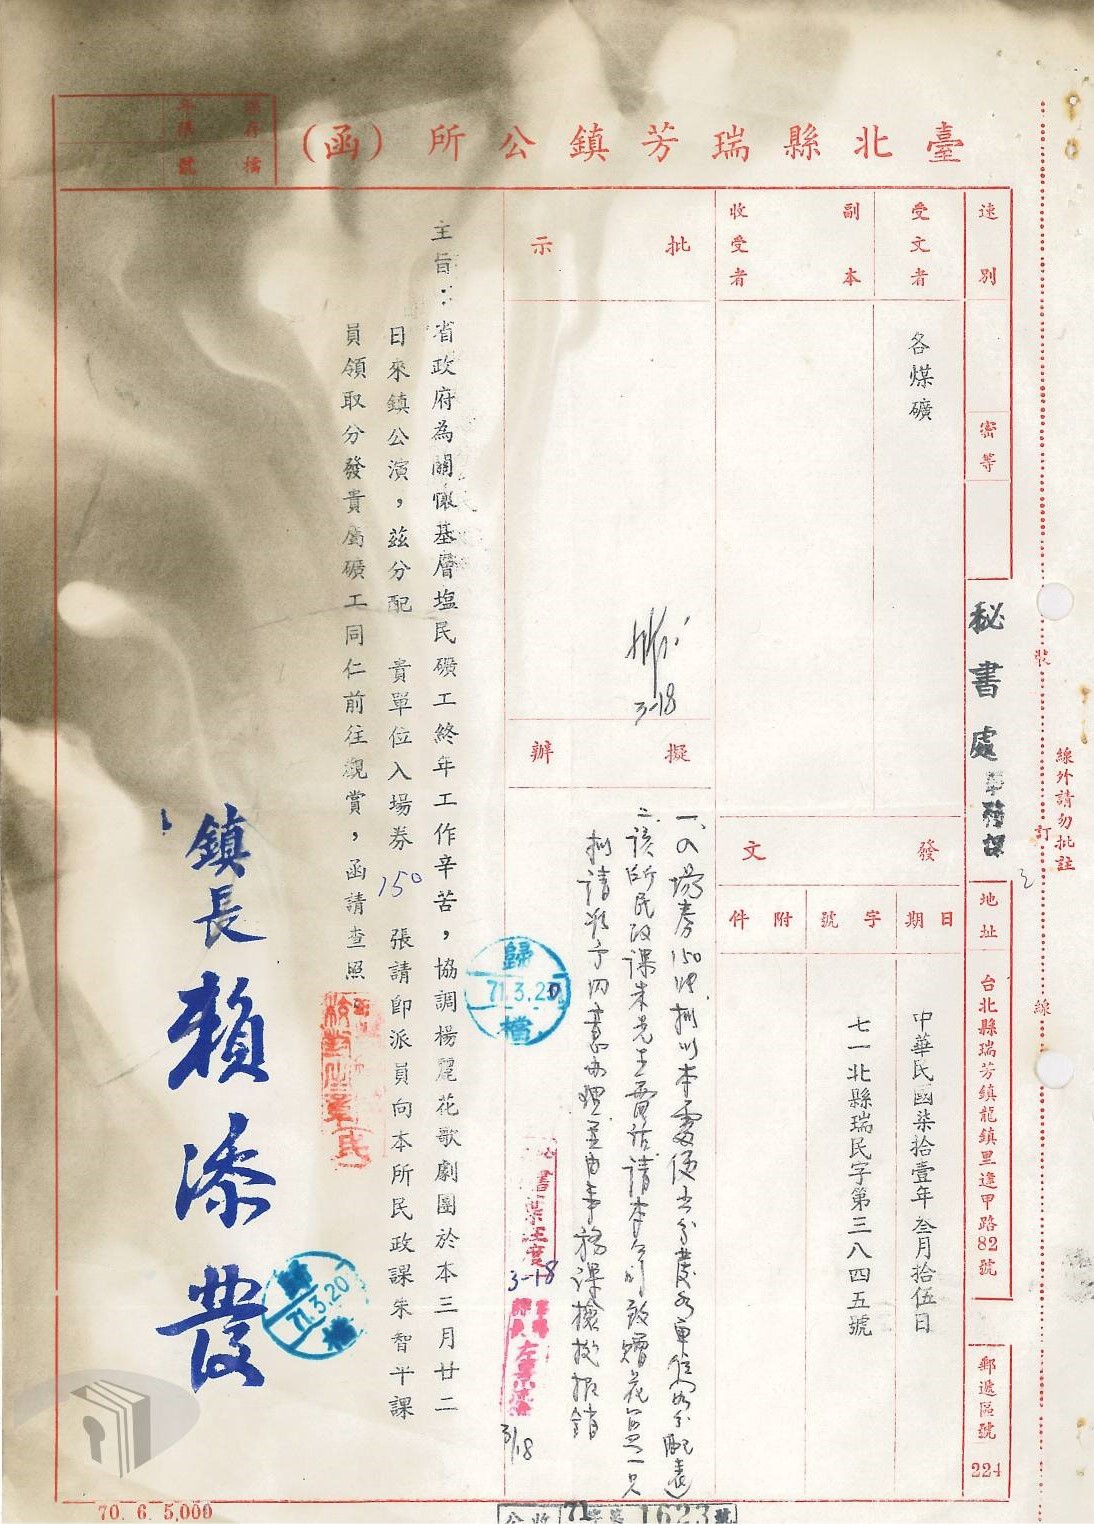 臺北縣瑞芳鎮公所（函）
保存
年限
檔
號
速別
密等
受文者
各煤礦
副本
收受者
批示
3-18
擬辦
一、入場券150張擬以本處便書分發各單位如分配表
二、該所民政課朱先生電話請本公司致贈花籃一只
擬請准予同意辦理並由事務課檢據報銷
3-18
3/18
發文
日期
中華民國柒拾壹年叁月拾伍日
字號
七一北縣瑞民字第三八四五號
附件
秘書處
事務課
地址
台北縣瑞芳鎮龍鎮里逢甲路82號
郵遞區號
224
裝訂線
線外請勿批註
主旨：省政府為關懷基層塩民礦工終年工作辛苦，協調楊麗花歌劇團於本三月廿二
日來鎮公演，茲分配　貴單位入場券150張請即派員向本所民政課朱智平課
員領取分發貴屬礦工同仁前往觀賞，函請查照
鎮長賴添發
歸檔
71.3.20
歸檔
71.3.20
70. 6. 5,000
公收71字第1623號